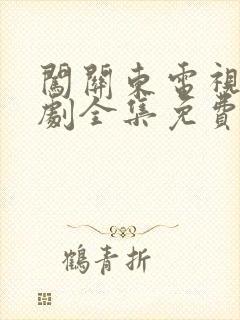 闖關東電視
劇全集免費
鶴青折